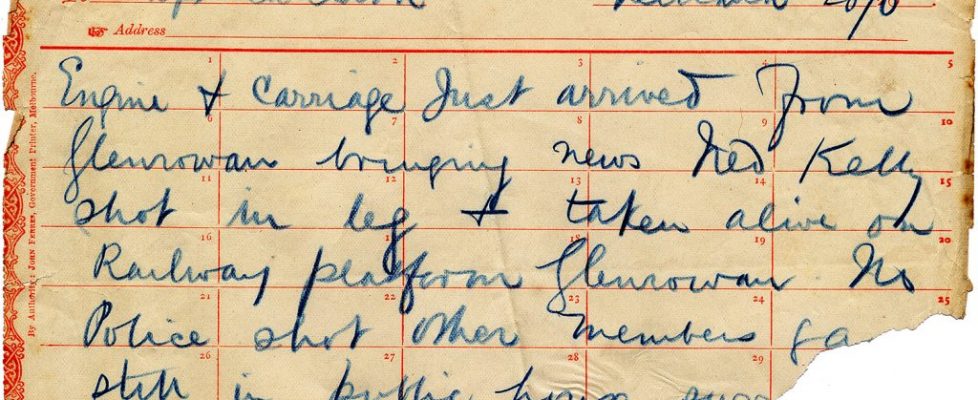 Address
1 2 3 4 5
Engine & Carriage Just arrived from
6 7 8 9 10
Glenrowan bringing news Ned Kelly
11 12 13 14 15
shot in leg & taken alive on
16 17 18 19 20
Railway platform Glenrowan. No
21 22 23 24 25
Police shot other members ga
26 27 28 29
still in public house
By Authority: JOHN FERRES, Government Printer, Melbourne.